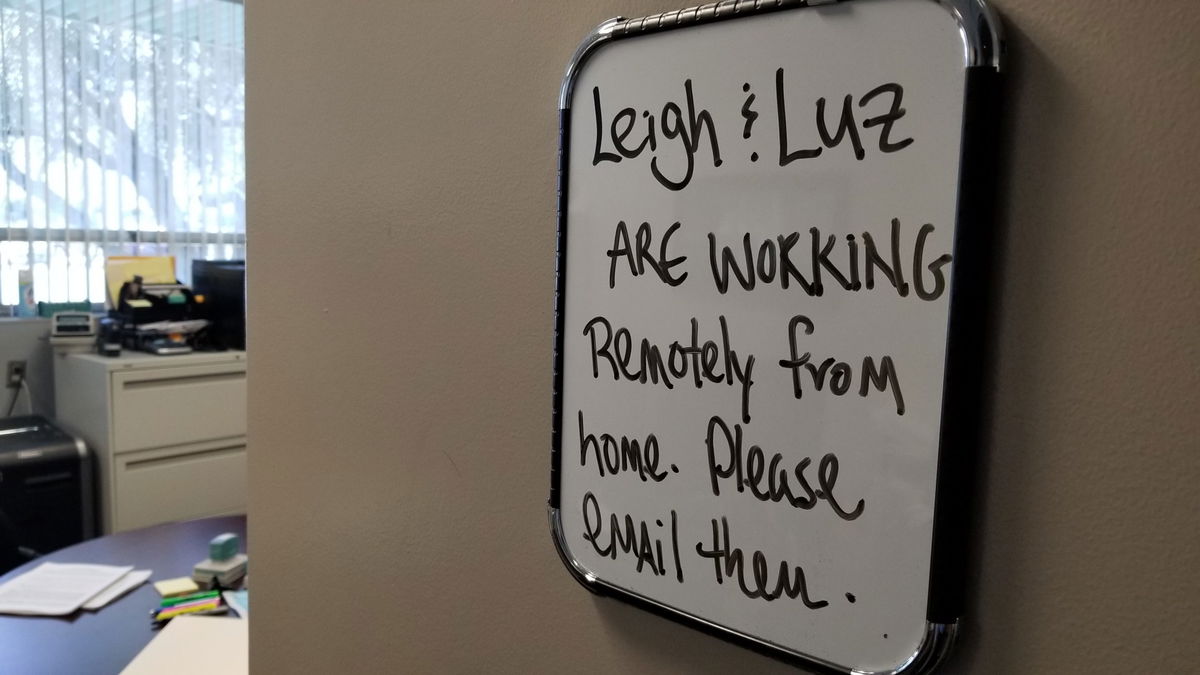 Leigh & Luz
ARE WORKING
Remotely from
home. Please
EMAil them.